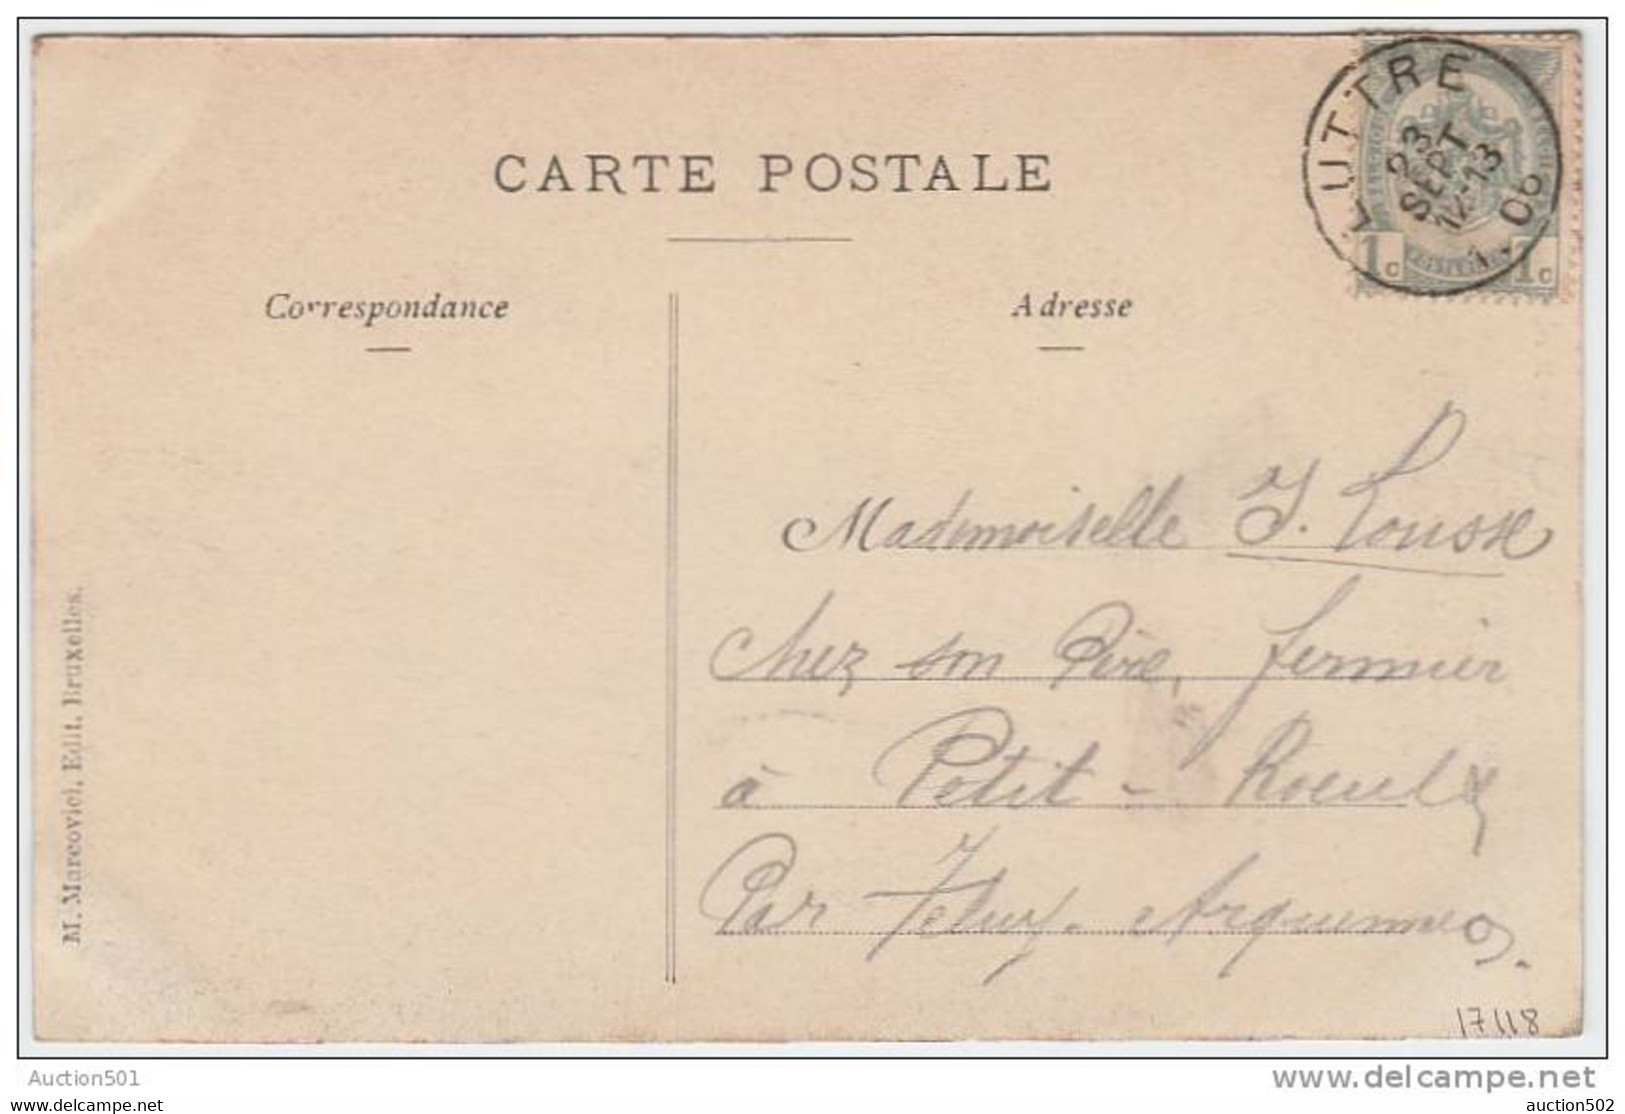 CARTE POSTALE
Correspondance
Adresse
LUTTRE
23
SEPT
12-13
06
1c 1c
Mademoiselle J. Rousse
chez son Père, fermier
à Petit-Roeulx
Par Feluy-Arquennes.
M. Marcovici, Edit. Bruxelles.
17118
Auction501
www.delcampe.net
auction501
auction502